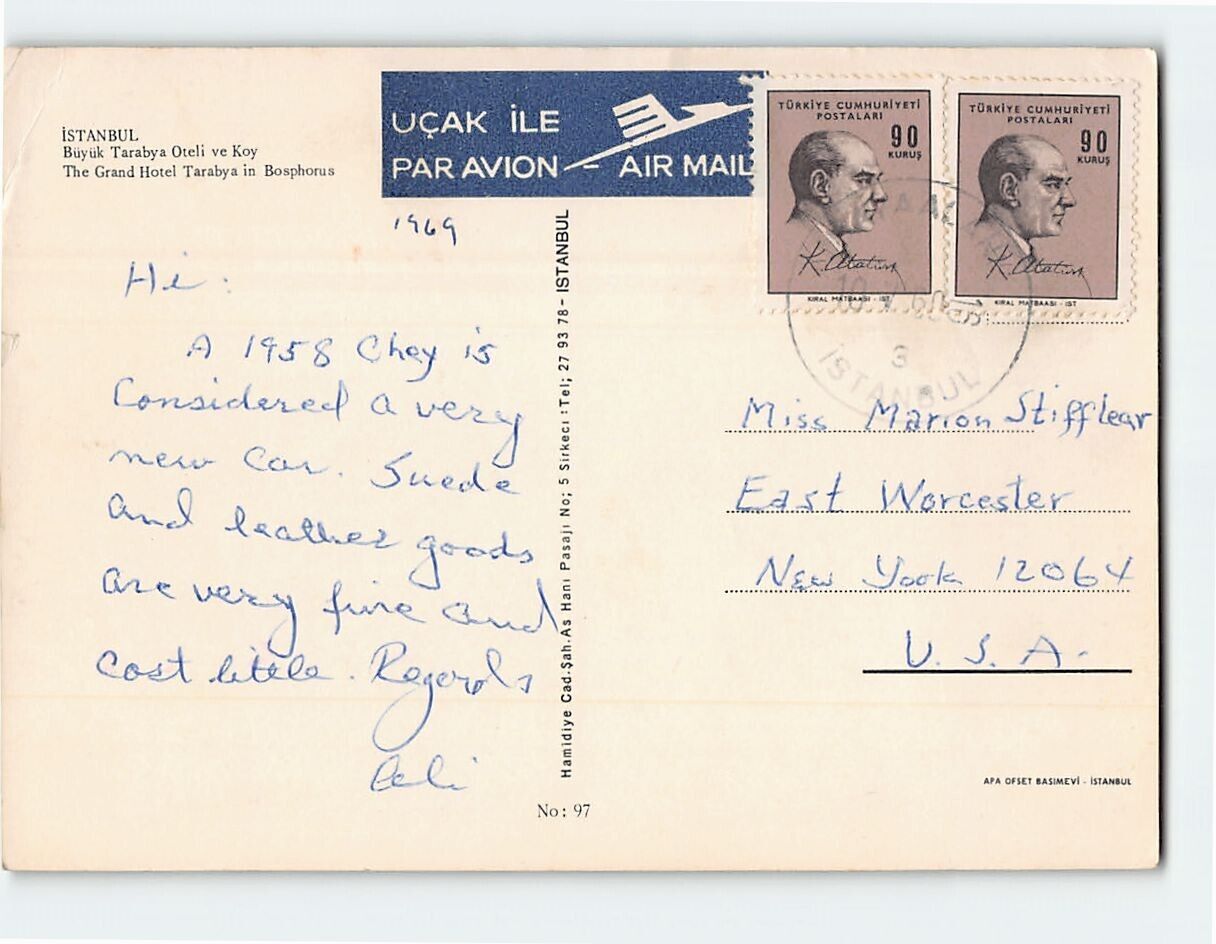 İSTANBUL
Büyük Tarabya Oteli ve Koy
The Grand Hotel Tarabya in Bosphorus
UÇAK İLE
PAR AVION - AIR MAIL
TÜRKİYE CUMHURİYETİ
POSTALARI
90
KURUŞ
K. Atatürk
KIRAL MATBAASI - IST
TÜRKİYE CUMHURİYETİ
POSTALARI
90
KURUŞ
K. Atatürk
KIRAL MATBAASI - IST
3
İSTANBUL
1969
Hi:
A 1958 Chev is
Considered a very
new car. Suede
and leather goods
are very fine and
cost little. Regards
Hamidiye Cad.Şah.As Hanı Pasajı No; 5 Sirkeci :Tel; 27 93 78 - ISTANBUL
Miss Marion Stifflear
East Worcester
New York 12064
U.S.A.
APA OFSET BASIMEVİ - İSTANBUL
No: 97